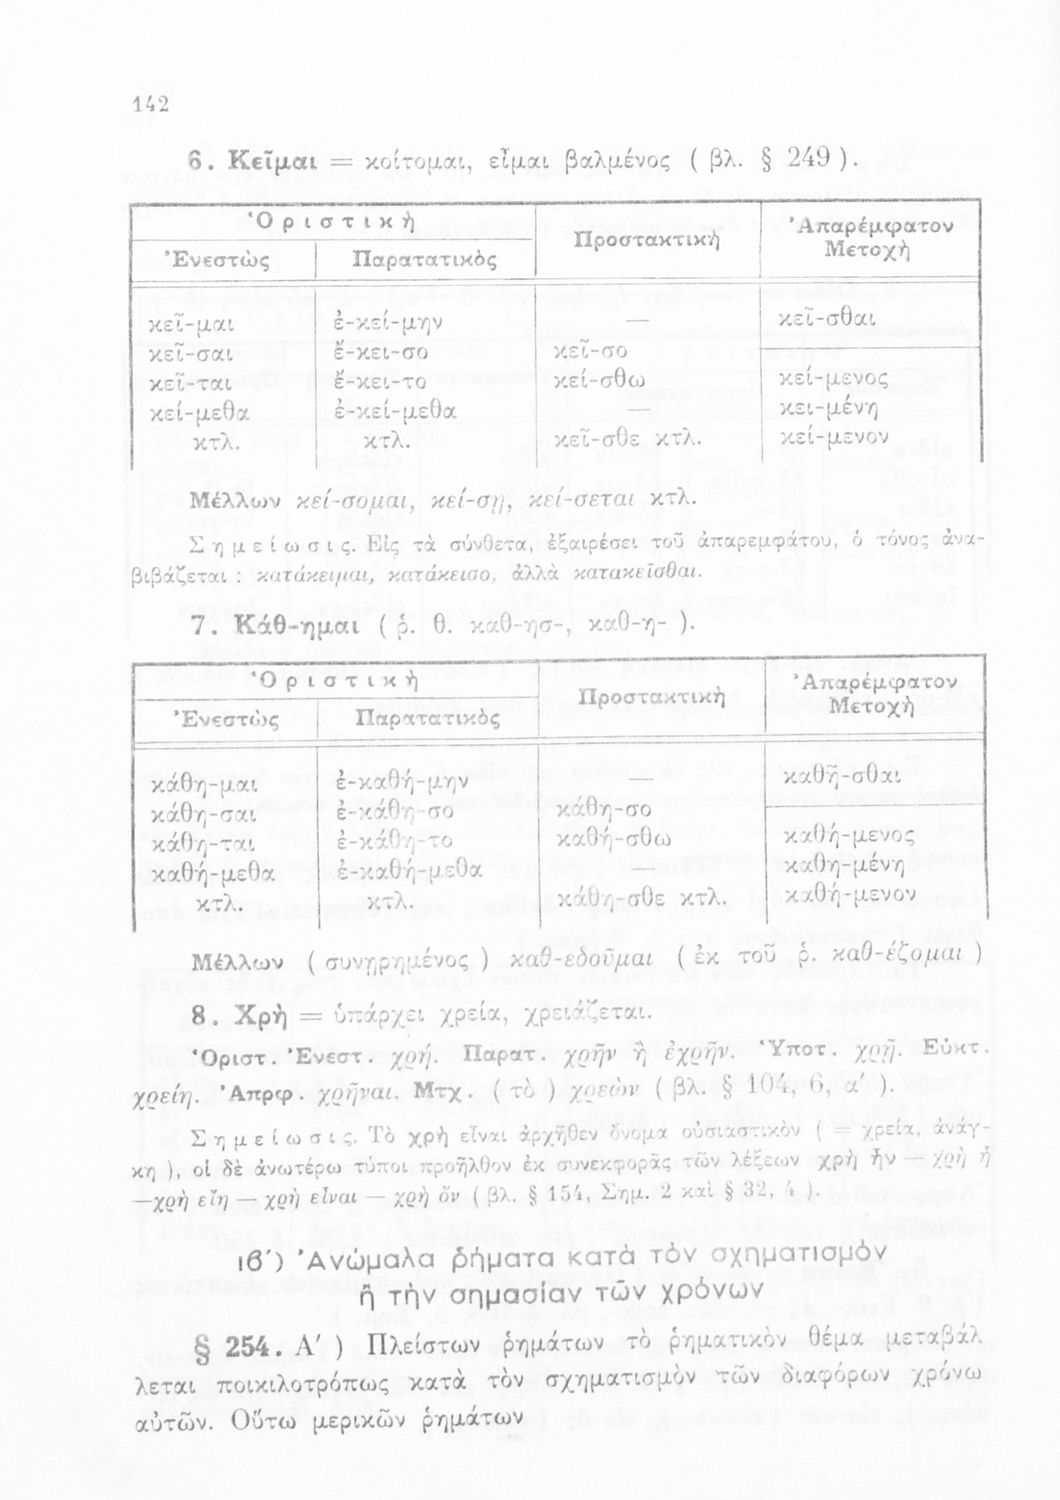 142
6. Κεῖμαι = κοίτομαι, εἶμαι βαλμένος ( βλ. § 249 ).
Ὁριστικὴ Προστακτικὴ Ἀπαρέμφατον
Μετοχὴ
Ἐνεστὼς Παρατατικὸς
κεῖ-μαι ἐ-κεί-μην — κεῖ-σθαι
κεῖ-σαι ἔ-κει-σο κεῖ-σο
κεῖ-ται ἔ-κει-το κεί-σθω κεί-μενος
κεί-μεθα ἐ-κεί-μεθα — κει-μένη
κτλ. κτλ. κεῖ-σθε κτλ. κεί-μενον
Μέλλων κεί-σομαι, κεί-σῃ, κεί-σεται κτλ.
Σημείωσις. Εἰς τὰ σύνθετα, ἐξαιρέσει τοῦ ἀπαρεμφάτου, ὁ τόνος ἀνα-
βιβάζεται : κατάκειμαι, κατάκεισο, ἀλλὰ κατακεῖσθαι.
7. Κάθ-ημαι ( ῥ. θ. καθ-ησ-, καθ-η- ).
Ὁριστικὴ Προστακτικὴ Ἀπαρέμφατον
Μετοχὴ
Ἐνεστὼς Παρατατικὸς
κάθη-μαι ἐ-καθή-μην — καθῆ-σθαι
κάθη-σαι ἐ-κάθη-σο κάθη-σο
κάθη-ται ἐ-κάθη-το καθή-σθω καθή-μενος
καθή-μεθα ἐ-καθή-μεθα — καθη-μένη
κτλ. κτλ. κάθη-σθε κτλ. καθή-μενον
Μέλλων ( συνῃρημένος ) καθ-εδοῦμαι ( ἐκ τοῦ ῥ. καθ-έζομαι )
8. Χρὴ = ὑπάρχει χρεία, χρειάζεται.
Ὁριστ. Ἐνεστ. χρή. Παρατ. χρῆν ἢ ἐχρῆν. Ὑποτ. χρῇ. Εὐκτ.
χρείη. Ἀπρφ. χρῆναι. Μτχ. ( τὸ ) χρεὼν ( βλ. § 104, 6, α΄ ).
Σημείωσις. Τὸ χρὴ εἶναι ἀρχῆθεν ὄνομα οὐσιαστικὸν ( = χρεία, ἀνάγ-
κη ), οἱ δὲ ἀνωτέρω τύποι προῆλθον ἐκ συνεκφορᾶς τῶν λέξεων χρὴ ἦν — χρὴ ᾖ
—χρὴ εἴη — χρὴ εἶναι — χρὴ ὂν ( βλ. § 154, Σημ. 2 καὶ § 32, 4 ).
ιβ΄) Ἀνώμαλα ῥήματα κατὰ τὸν σχηματισμὸν
ἢ τὴν σημασίαν τῶν χρόνων
§ 254. Α΄ ) Πλείστων ῥημάτων τὸ ῥηματικὸν θέμα μεταβάλ
λεται ποικιλοτρόπως κατὰ τὸν σχηματισμὸν τῶν διαφόρων χρόνω
αὐτῶν. Οὕτω μερικῶν ῥημάτων